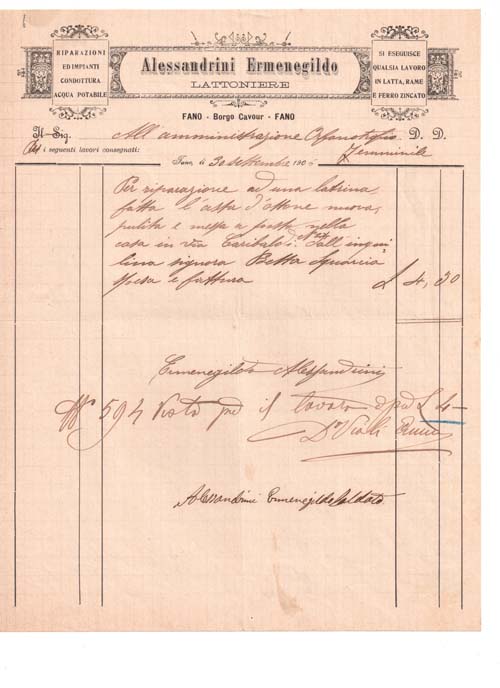 RIPARAZIONI
ED IMPIANTI
CONDOTTURA
ACQUA POTABILE
Alessandrini Ermenegildo
LATTONIERE
SI ESEGUISCE
QUALSIA LAVORO
IN LATTA, RAME
E FERRO ZINCATO
FANO - Borgo Cavour - FANO
Il Sig. All'amministrazione Orfanotrofio D. D.
Femminile
Per i seguenti lavori consegnati:
Fano, li 30 settembre 1906
Per riparazione ad una latrina
fatta l'asta d'ottone nuova,
pulita e messa a posto nella
casa in via Garibaldi. Dall'inqui
lina signora Betta Squarcia
spesa e fattura £ 4,30
Ermenegildo Alessandrini
N° 594 Visto per il lavoro e per £ 4-
Alessandrini Ermenegildo Saldato